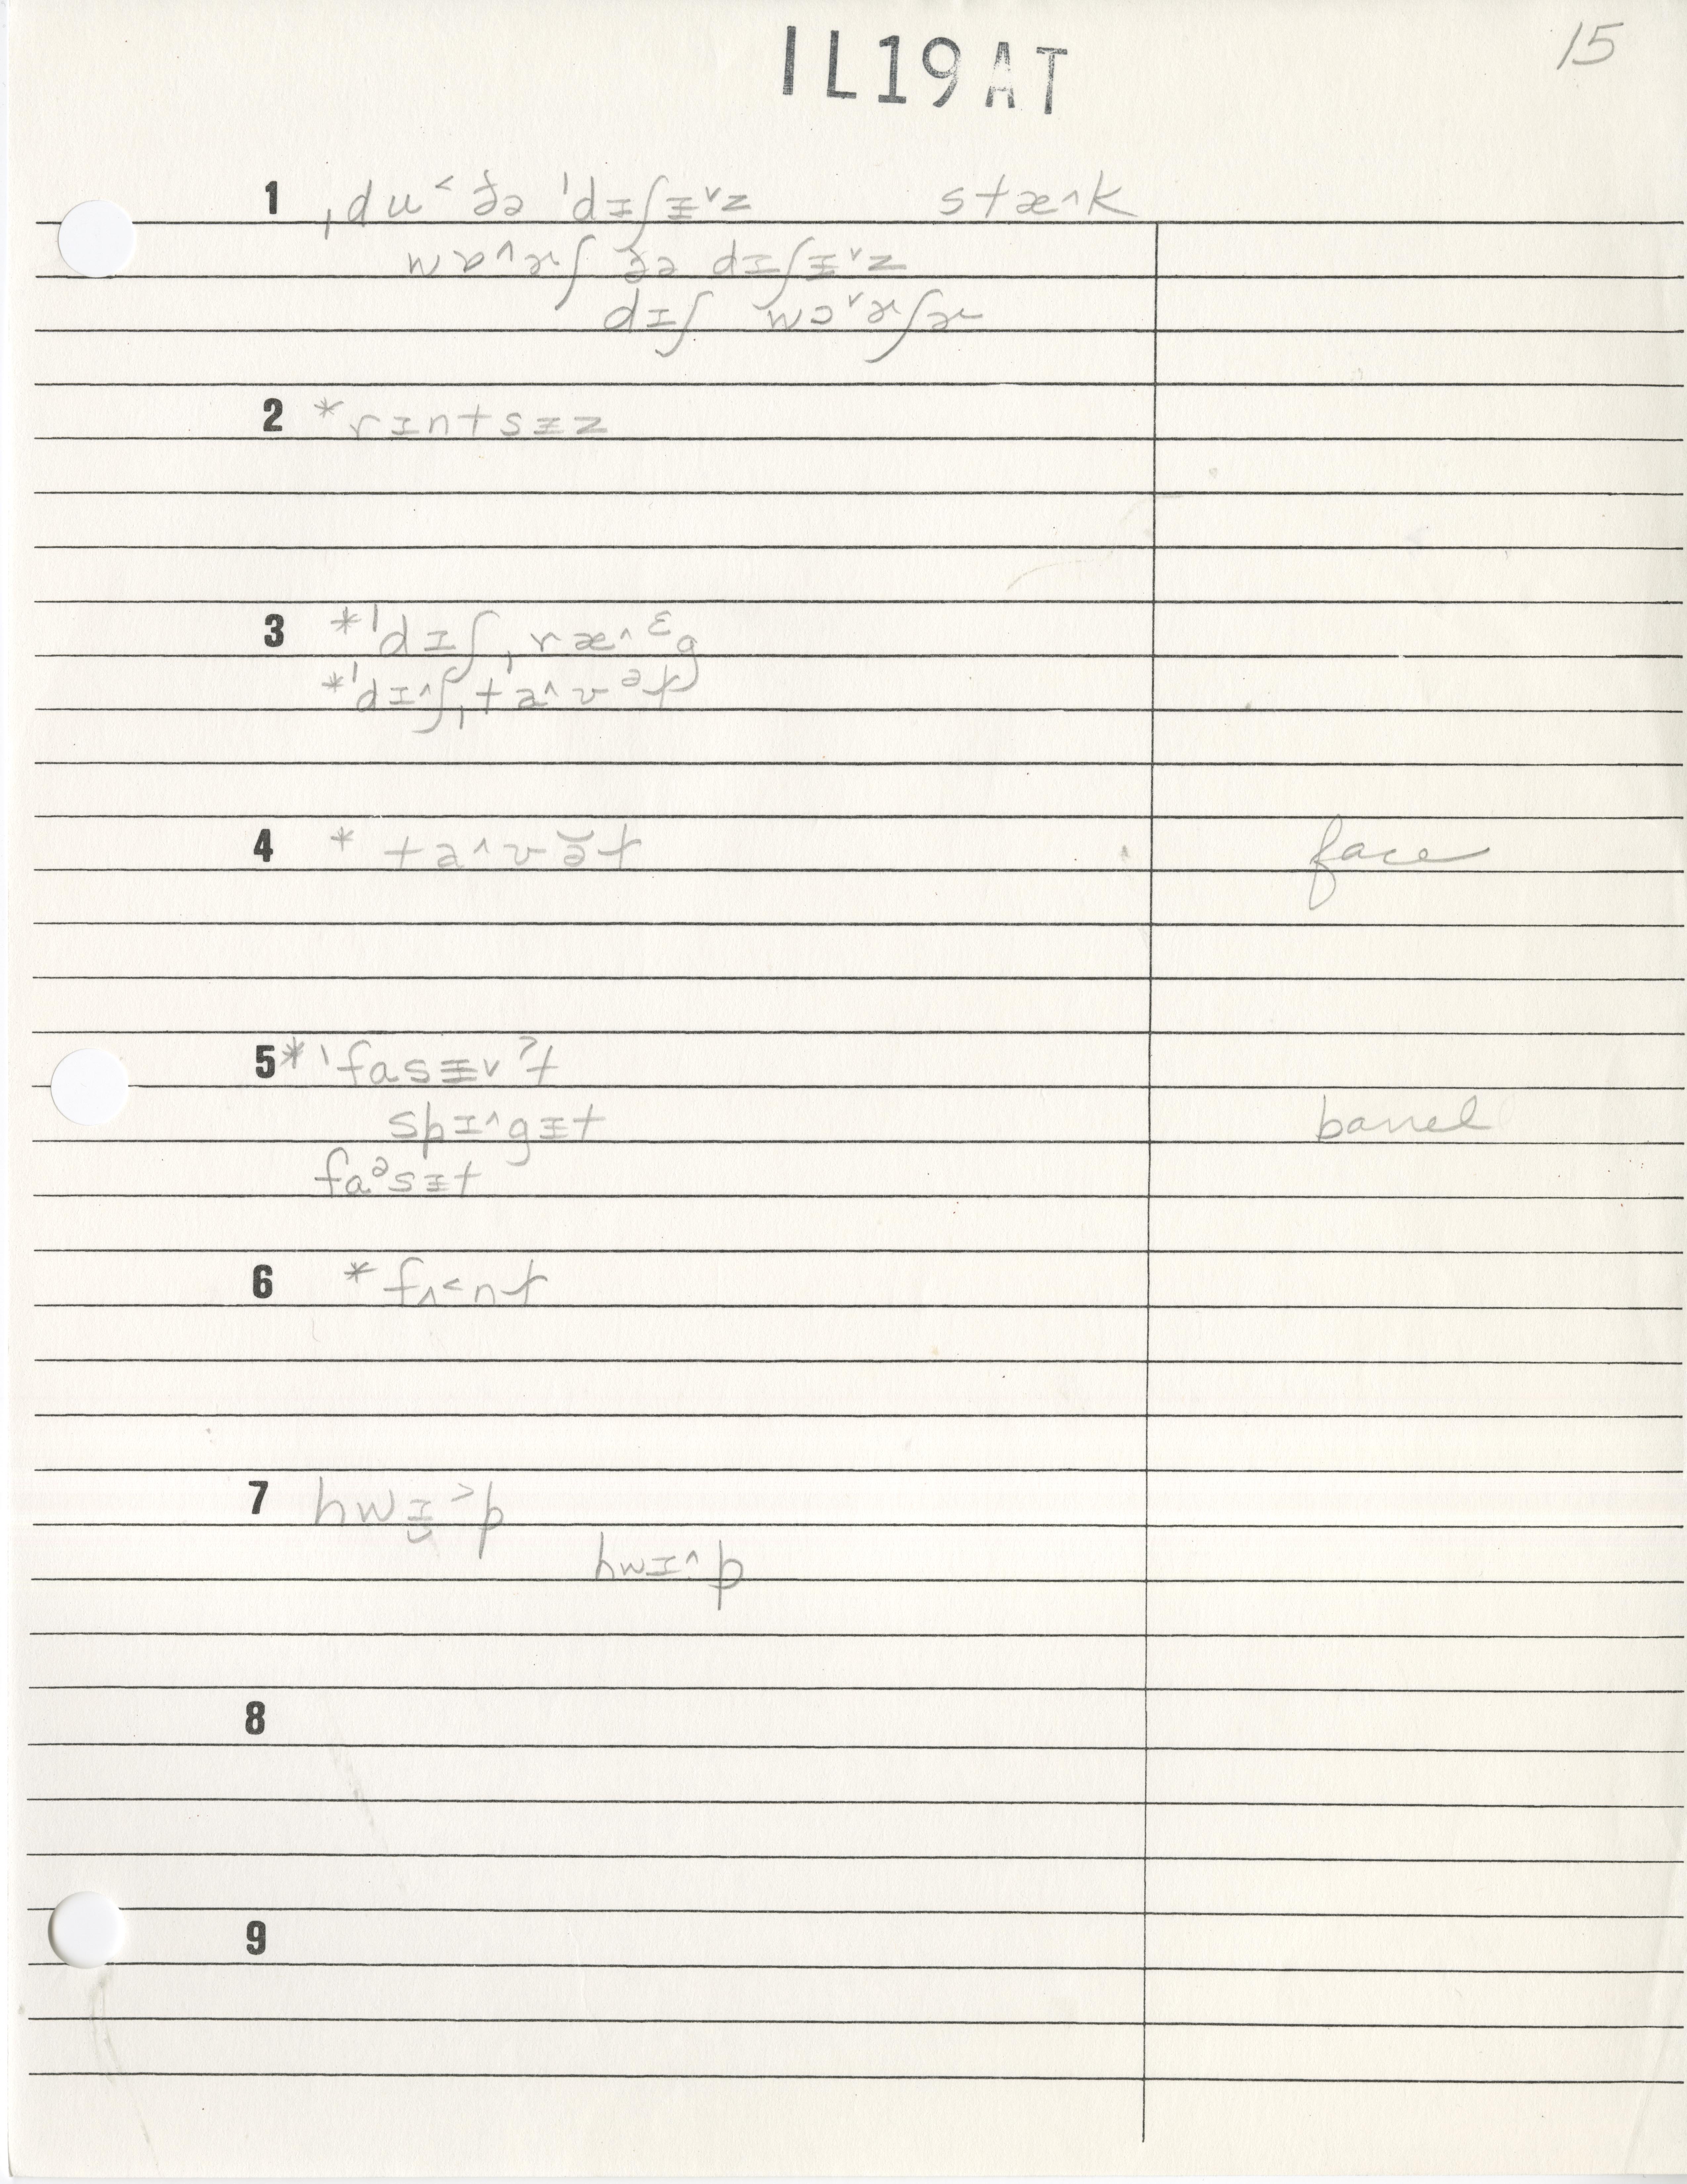 1L19AT 15
1 ˌdu˂ ðə ˈdɪʃɨ˅z stæ˄k
wɒ˄ɚʃ ðə dɪʃɨ˅z
dɪʃ wɔ˅ɚʃɚ
2 *rɪntsɨz
3 *ˈdɪʃˌræ˄ᵋg
*ˈdɪ˄ʃˌta˄ʊᵊɫ
4 * ta˄ʊə̆ɫ face
5 *ˈfasɨ˅ˀt
spɪ˄gɨt barrel
faᵊsɨt
6 *fʌ˂nɫ
7 hwɪ̮˃p
hwɪ˄p
8
9